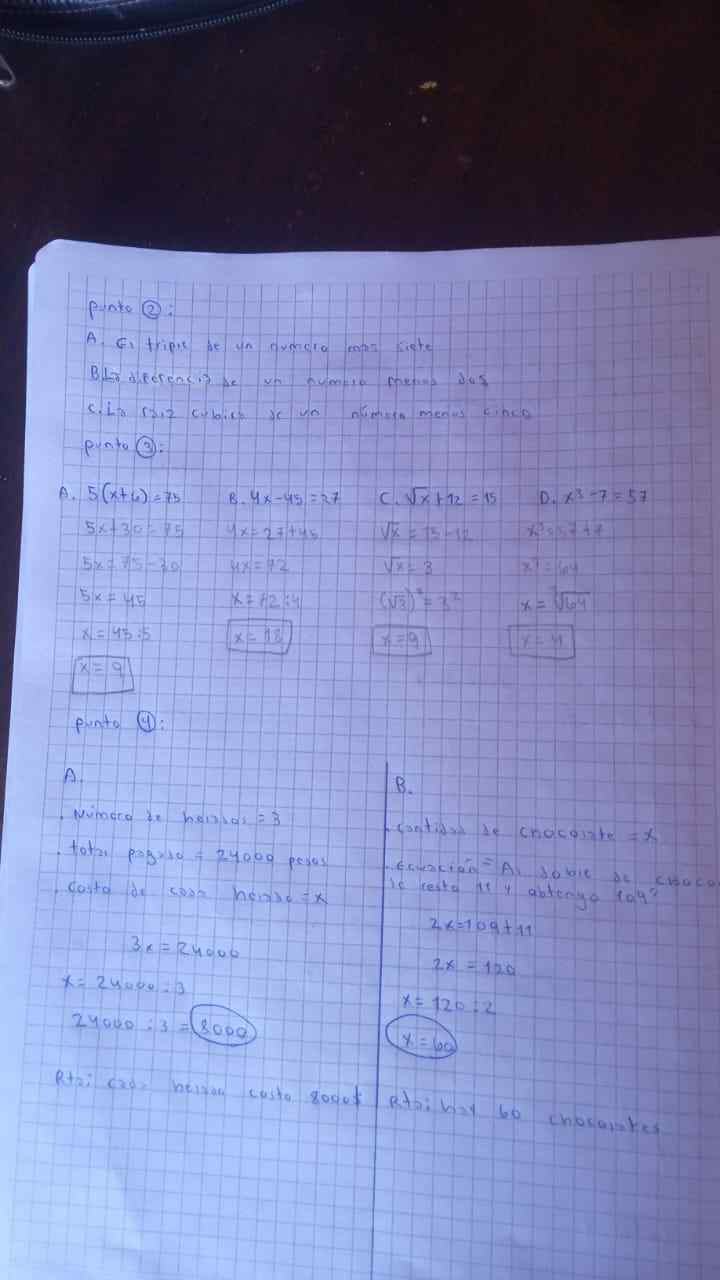 punto ②:
A. El triple de un número mas siete
B. La diferencia de un número menos dos
C. La raiz cubica de un número menos cinco
punto ③:
A. 5(x+6)=75
5x+30=75
5x=75-30
5x=45
x=45:5
x=9
B. 4x-45=27
4x=27+45
4x=72
x=72:4
x=18
C. √x+12=15
√x=15-12
√x=3
(√3)²=3²
x=9
D. x³-7=57
x³=57+7
x³=64
x=∛64
x=4
punto ④:
A.
. Número de helados=3
. total pagado=24000 pesos
. costo de cada helado=x
3x=24000
x=24000:3
24000:3=8000
Rta: cada helado costo 8000$
B.
. cantidad de chocolate=x
. Ecuación= Al doble de choco
le resta 11 y obtengo 109?
2x=109+11
2x=120
x=120:2
x=60
Rta: hay 60 chocolates